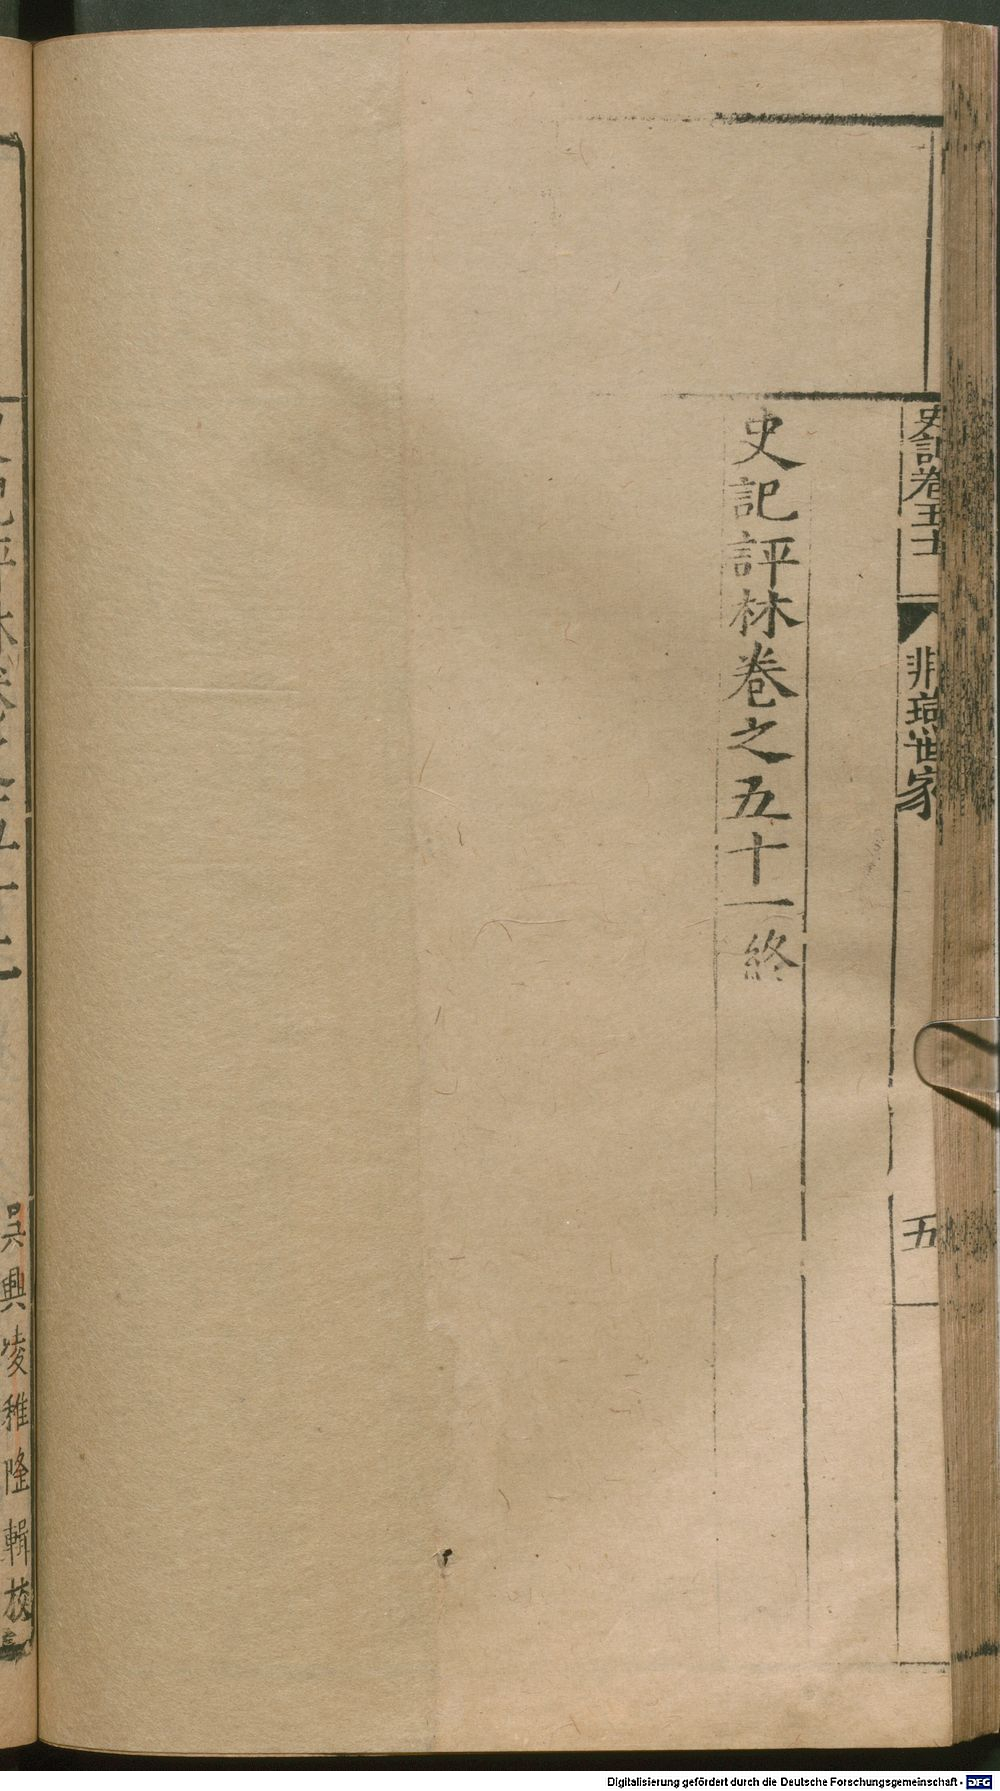 史記卷五十一
荆燕世家
五
史記評林卷之五十一終
吳興凌稚隆輯校
Digitalisierung gefördert durch die Deutsche Forschungsgemeinschaft - DFG